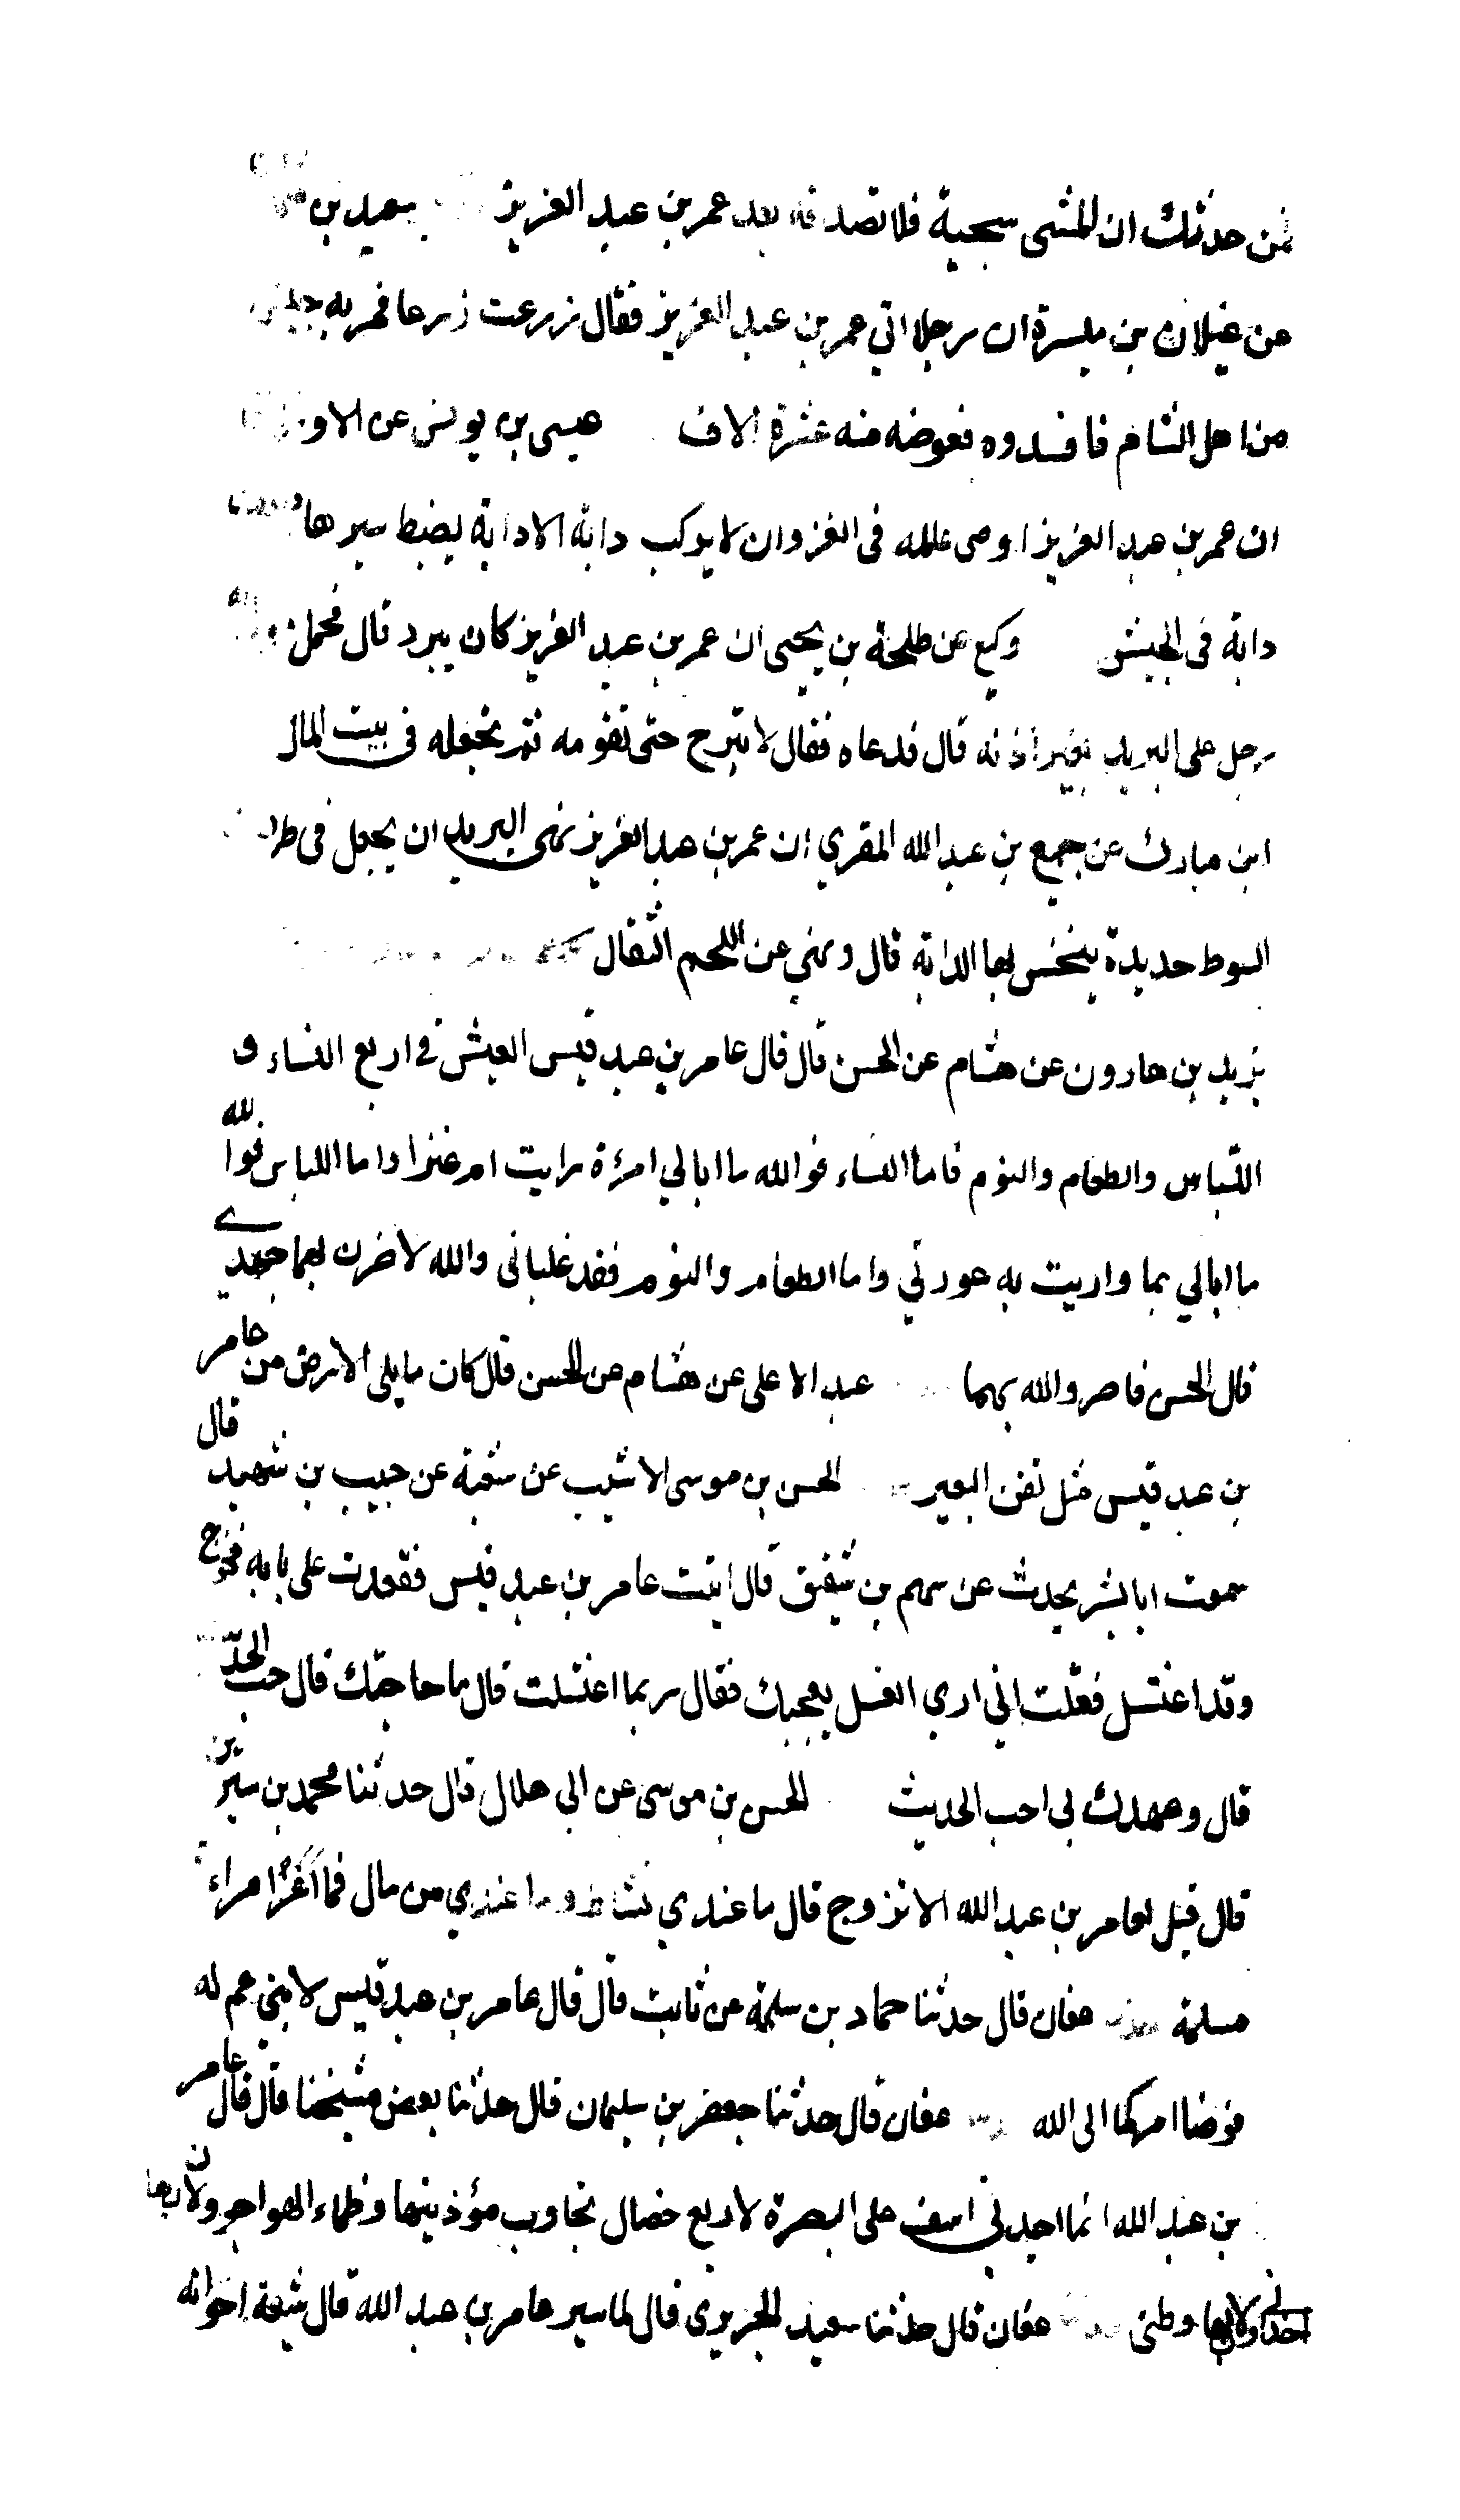 فمن حدثك ان المشى سجية فلا تصدقه بعد عمر بن عبد العزيز سعيد بن
عن غيلان بن ميسرة ان رجلا اتي عمر بن عبد العزيز فقال زرعت زرعا فمر به جيش
من اهل الشام فافسدوه فعوضه منه عشرة الاف عيسى بن يونس عن الاوزا
ان عمر بن عبد العزيز اوصى عامله فى الغزو ان لا يركب دابة الا دابة يضبط سيرها
دابة فى الجيش وكيع عن طلحة بن يحيى ان عمر بن عبد العزيز كان يبرد قال فحمل
رجل على البريد بغير اذنه قال فدعاه فقال لا تبرح حتى تقومه ثم تجعله فى بيت المال
ابن مبارك عن جميع بن عبد الله المقري ان عمر بن عبد العزيز نهى البريد ان يجعل فى طرف
السوط حديدة ينخس بها الدابة قال ونهي عن اللجم الثقال
يزيد بن هارون عن هشام عن الحسن قال قال عامر بن عبد قيس العيش في اربع النساء و
اللباس والطعام والنوم فاما النساء فوالله ما ابالي امرءة رايت ام عنزا واما اللباس فوالله
ما ابالي بما واريت به عورتي واما الطعام والنوم فقد غلبانى والله لاضرن بهما جهدي
قال الحسن فاضر والله بهما عبد الاعلى عن هشام عن الحسن قال كان ما يلى الارض من عامر
بن عبد قيس مثل ثفن البعير الحسن بن موسى الاشيب عن شعبة عن حبيب بن شهيد قال
سمعت ابا بشر يحدث عن سهم بن شقيق قال اتيت عامر بن عبد قيس فقعدت على بابه فخرج
وقد اغتسل فقلت اني اري الغسل يعجبك فقال ربما اغتسلت قال ما حاجتك قال حب الحديث
قال وعهدك بى احب الحديث الحسن بن موسى عن ابي هلال قال حدثنا محمد بن سيرين
قال قيل لعامر بن عبد الله الا تزوج قال ما عندي نشاط وما عندي من مال فما اغر امراءة
مسلمة عفان قال حدثنا حماد بن سلمة عن ثابت قال قال عامر بن عبد قيس لابني عم له
فوضا امركما الى الله عفان قال حدثنا جعفر بن سليمان قال حدثنا بعض مشيختنا قال قال عامر
بن عبد الله انما اجدنى اسف على البصرة لاربع خصال تجاوب مؤذنيها وظماء الهواجر ولان بها
اخدانى ولان بها وطنى عفان قال حدثنا سعيد الجريرى قال لما سير عامر بن عبد الله قال شيعه اخوانه